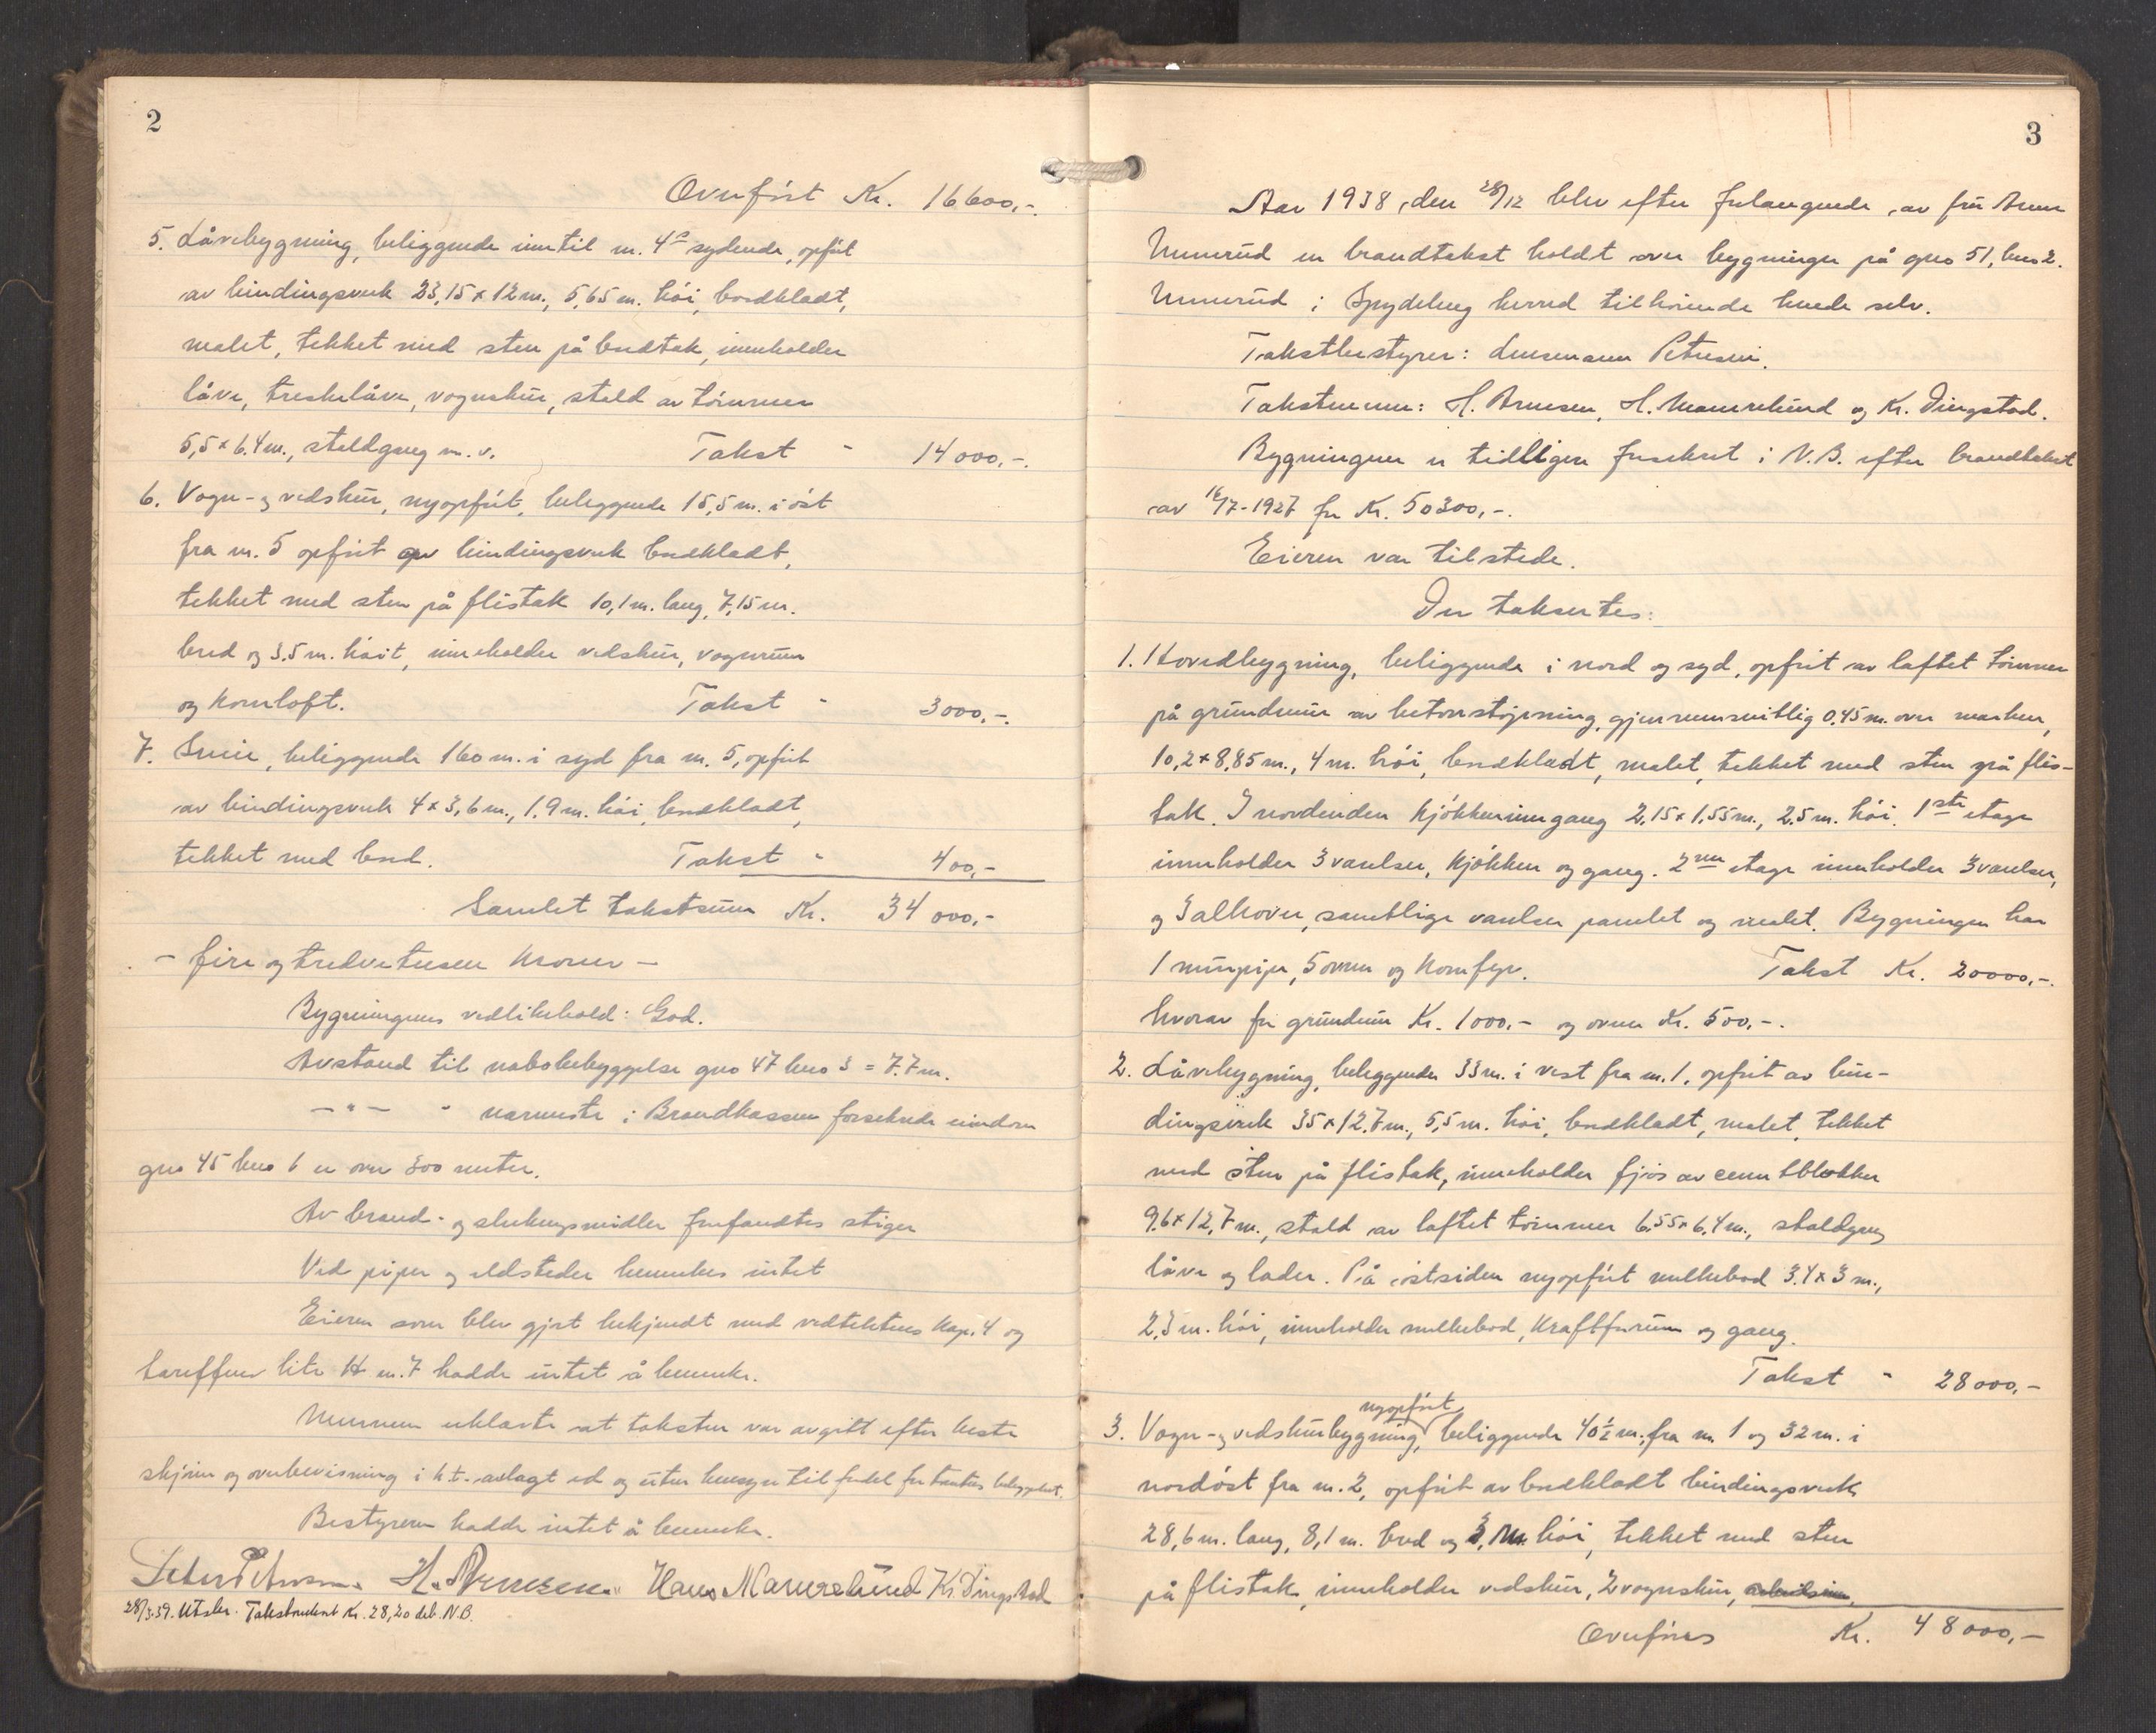 2
Overført Kr. 16600,-.
5. Låvebygning, beliggende inntil nr. 4s sydende, opført
av bindingsverk 23,15 x 12 m., 5,65 m. høi, bordkledt,
malet, tekket med sten på bordtak, inneholder
låve, treskelåve, vognskur, stald av tømmer
5,5 x 6.4 m., staldgang m. v. Takst " 14000,-.
6. Vogn- og vedskur, nyopført, beliggende 15,5 m. i øst
fra nr. 5 opført av bindingsverk bordkledt,
tekket med sten på flistak 10,1 m. lang, 7,15 m.
bred og 3.5 m. høit, inneholder vedskur, vognrum
og kornloft. Takst " 3000,-.
7. Smie, beliggende 160 m. i syd fra nr. 5, opført
av bindingsverk 4 x 3,6 m., 1.9 m. høi, bordkledt,
tekket med bord. Takst " 400,-
Samlet takstsum Kr. 34000,-
- fire og tredvetusen kroner -
Bygningenes vedlikehold: God.
Avstand til nabobebyggelse gno 47 bno 3 = 7.7 m.
-"- " nærmeste i Brandkassen forsikrede eiendom
gno 45 bno 6 er over 300 meter.
Av brand- og slukningsmidler forefandtes stiger
Ved piper og ildsteder bemerkes intet
Eieren som blev gjort bekjendt med vedtektenes kap. 4 og
tariffens litr. H nr. 7 hadde intet å bemerke.
Mennene erklærte at taksten var avgitt efter beste
skjønn og overbevisning i h.t. avlagt ed og uten hensyn til fordel for bestus beliggenhet.
Bestyreren hadde intet å bemerke.
Peter Petersen. H. Arnesen. Hans Mamrelund Kr. Dingstad
28/3.39. Utskr. Takstombent Kr. 28,20 deb. N.B.
3
Aar 1938, den 28/12 blev efter forlangende av fru Anne
Unnerud en brandtakst holdt over bygninger på gno 51, bno 2.
Unnerud i Spydeberg herred tilhørende hende selv.
Takstbestyrer: Lensmann Petersen.
Takstmenn: H. Arnesen, H. Mamrelund og Kr. Dingstad.
Bygningene er tidligere forsikret i N.B. efter brandtakst
av 16/7-1927 for Kr. 50300,-.
Eieren var tilstede.
Der takseres:
1. Hovedbygning, beliggende i nord og syd, opført av laftet tømmer
på grundmur av betonstøpning, gjennemsnitlig 0.45 m. over marken,
10,2 x 8,85 m., 4 m. høi, bordkledt, malet, tekket med sten på flis-
tak. I nordenden kjøkkeninngang 2,15 x 1,55 m., 2.5 m. høi. 1ste etage
inneholder 3 værelser, kjøkken og gang. 2nen etage inneholder 3 værelser,
og 3 alkover, samtlige værelser panelet og malet. Bygningen har
1 murpipe, 5 ovner og komfyr. Takst Kr. 20000,-.
hvorav for grundmur Kr. 1000,- og ovner Kr. 500,-.
2. Låvebygning, beliggende 33 m. i vest fra nr. 1, opført av bin-
dingsverk 35 x 12.7 m., 5,5 m. høi, bordkledt, malet, tekket
med sten på flistak, inneholder fjøs av cementblokker
9.6 x 12,7 m., stald av laftet tømmer 6.55 x 6,4 m., staldgang
låve og lader. På østsiden nyopført melkebod 3.4 x 3 m.,
2,3 m. høi, inneholder melkebod, kraftforrum og gang.
Takst " 28000,-
3. Vogn- og vedskurbygning, nyopført, beliggende 40½ m. fra nr. 1 og 32 m. i
nordøst fra nr. 2, opført av bordkledt bindingsverk
28,6 m. lang, 8,1 m. bred og 3, m. høi, tekket med sten
på flistak, inneholder vedskur, 2 vognskur,
Overføres Kr. 48000,-